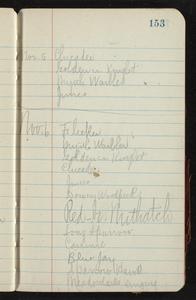 153
Nov. 5 Chicadee
Golden cr. Kinglet
Myrtle Warbler
Junco
Nov. 6 Flicker
Myrtle Warbler
Golden cr. Kinglet
Chicadee
Junco
Downy Woodpeck
Red-br. Nuthatch
Song Sparrow
Blue Jay
Sparrow Hawk
Meadowlark